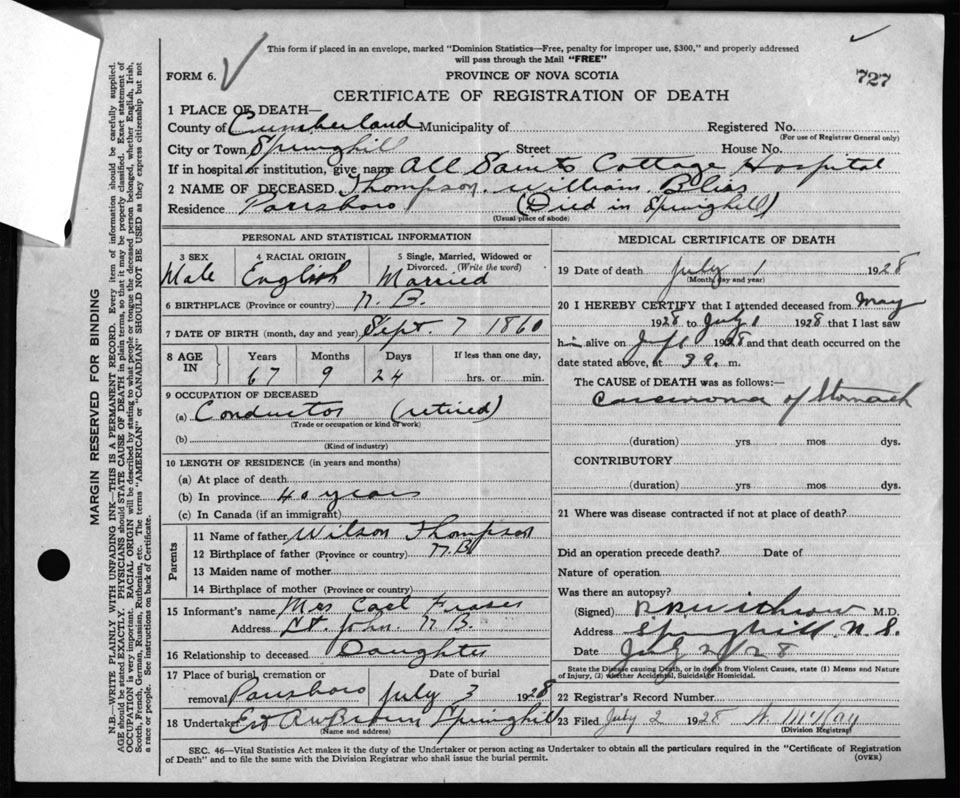 This form if placed in an envelope, marked "Dominion Statistics—Free, penalty for improper use, $300," and properly addressed
will pass through the Mail "FREE"
FORM 6.
PROVINCE OF NOVA SCOTIA
727
CERTIFICATE OF REGISTRATION OF DEATH
1 PLACE OF DEATH—
County of Cumberland Municipality of Registered No.
(For use of Registrar General only)
City or Town Springhill Street House No.
If in hospital or institution, give name All Saints Cottage Hospital
2 NAME OF DECEASED Thompson, William Bliss
Residence Parrsboro (Died in Springhill)
(Usual place of abode)
PERSONAL AND STATISTICAL INFORMATION
3 SEX 4 RACIAL ORIGIN 5 Single, Married, Widowed or
Divorced. (Write the word)
Male English Married
6 BIRTHPLACE (Province or country) N.B.
7 DATE OF BIRTH (month, day and year) Sept 7 1860
8 AGE IN Years Months Days If less than one day,
67 9 24 hrs. or min.
9 OCCUPATION OF DECEASED
(a) Conductor (retired)
(Trade or occupation or kind of work)
(b)
(Kind of industry)
10 LENGTH OF RESIDENCE (in years and months)
(a) At place of death
(b) In province 40 years
(c) In Canada (if an immigrant)
Parents
11 Name of father Wilson Thompson
12 Birthplace of father (Province or country) N.B.
13 Maiden name of mother
14 Birthplace of mother (Province or country)
15 Informant's name Mrs Carl Fraser
Address St. John. N.B.
16 Relationship to deceased Daughter
17 Place of burial, cremation or Date of burial
removal Parrsboro July 3 1928
18 Undertaker Est A W Brown Springhill
(Name and address)
MEDICAL CERTIFICATE OF DEATH
19 Date of death July 1 1928
(Month, day and year)
20 I HEREBY CERTIFY that I attended deceased from May
1928 to July 1 1928 that I last saw
him alive on 1928 and that death occurred on the
date stated above, at 3 a. m.
The CAUSE of DEATH was as follows:—
Carcinoma of Stomach
(duration) yrs. mos dys.
CONTRIBUTORY
(duration) yrs. mos. dys.
21 Where was disease contracted if not at place of death?
Did an operation precede death? Date of
Nature of operation
Was there an autopsy?
(Signed) Withrow M.D.
Address Springhill N.S.
Date July 2/28
State the Disease causing Death, or in death from Violent Causes, state (1) Means and Nature
of Injury, (2) whether Accidental, Suicidal or Homicidal.
22 Registrar's Record Number
23 Filed July 2 1928 McKay
(Division Registrar)
SEC. 46—Vital Statistics Act makes it the duty of the Undertaker or person acting as Undertaker to obtain all the particulars required in the "Certificate of Registration
of Death" and to file the same with the Division Registrar who shall issue the burial permit.
(OVER)
MARGIN RESERVED FOR BINDING
N.B.—WRITE PLAINLY WITH UNFADING INK—THIS IS A PERMANENT RECORD. Every item of information should be carefully supplied.
AGE should be stated EXACTLY. PHYSICIANS should STATE CAUSE OF DEATH in plain terms, so that it may be properly classified. Exact statement of
OCCUPATION is very important. RACIAL ORIGIN will be described by stating to what people or tongue the deceased person belonged, whether English, Irish,
Scotch, French, German, Russian, Ruthenian, etc. The terms "AMERICAN" or "CANADIAN" SHOULD NOT BE USED as they express citizenship but not
a race or people. See instructions on back of Certificate.